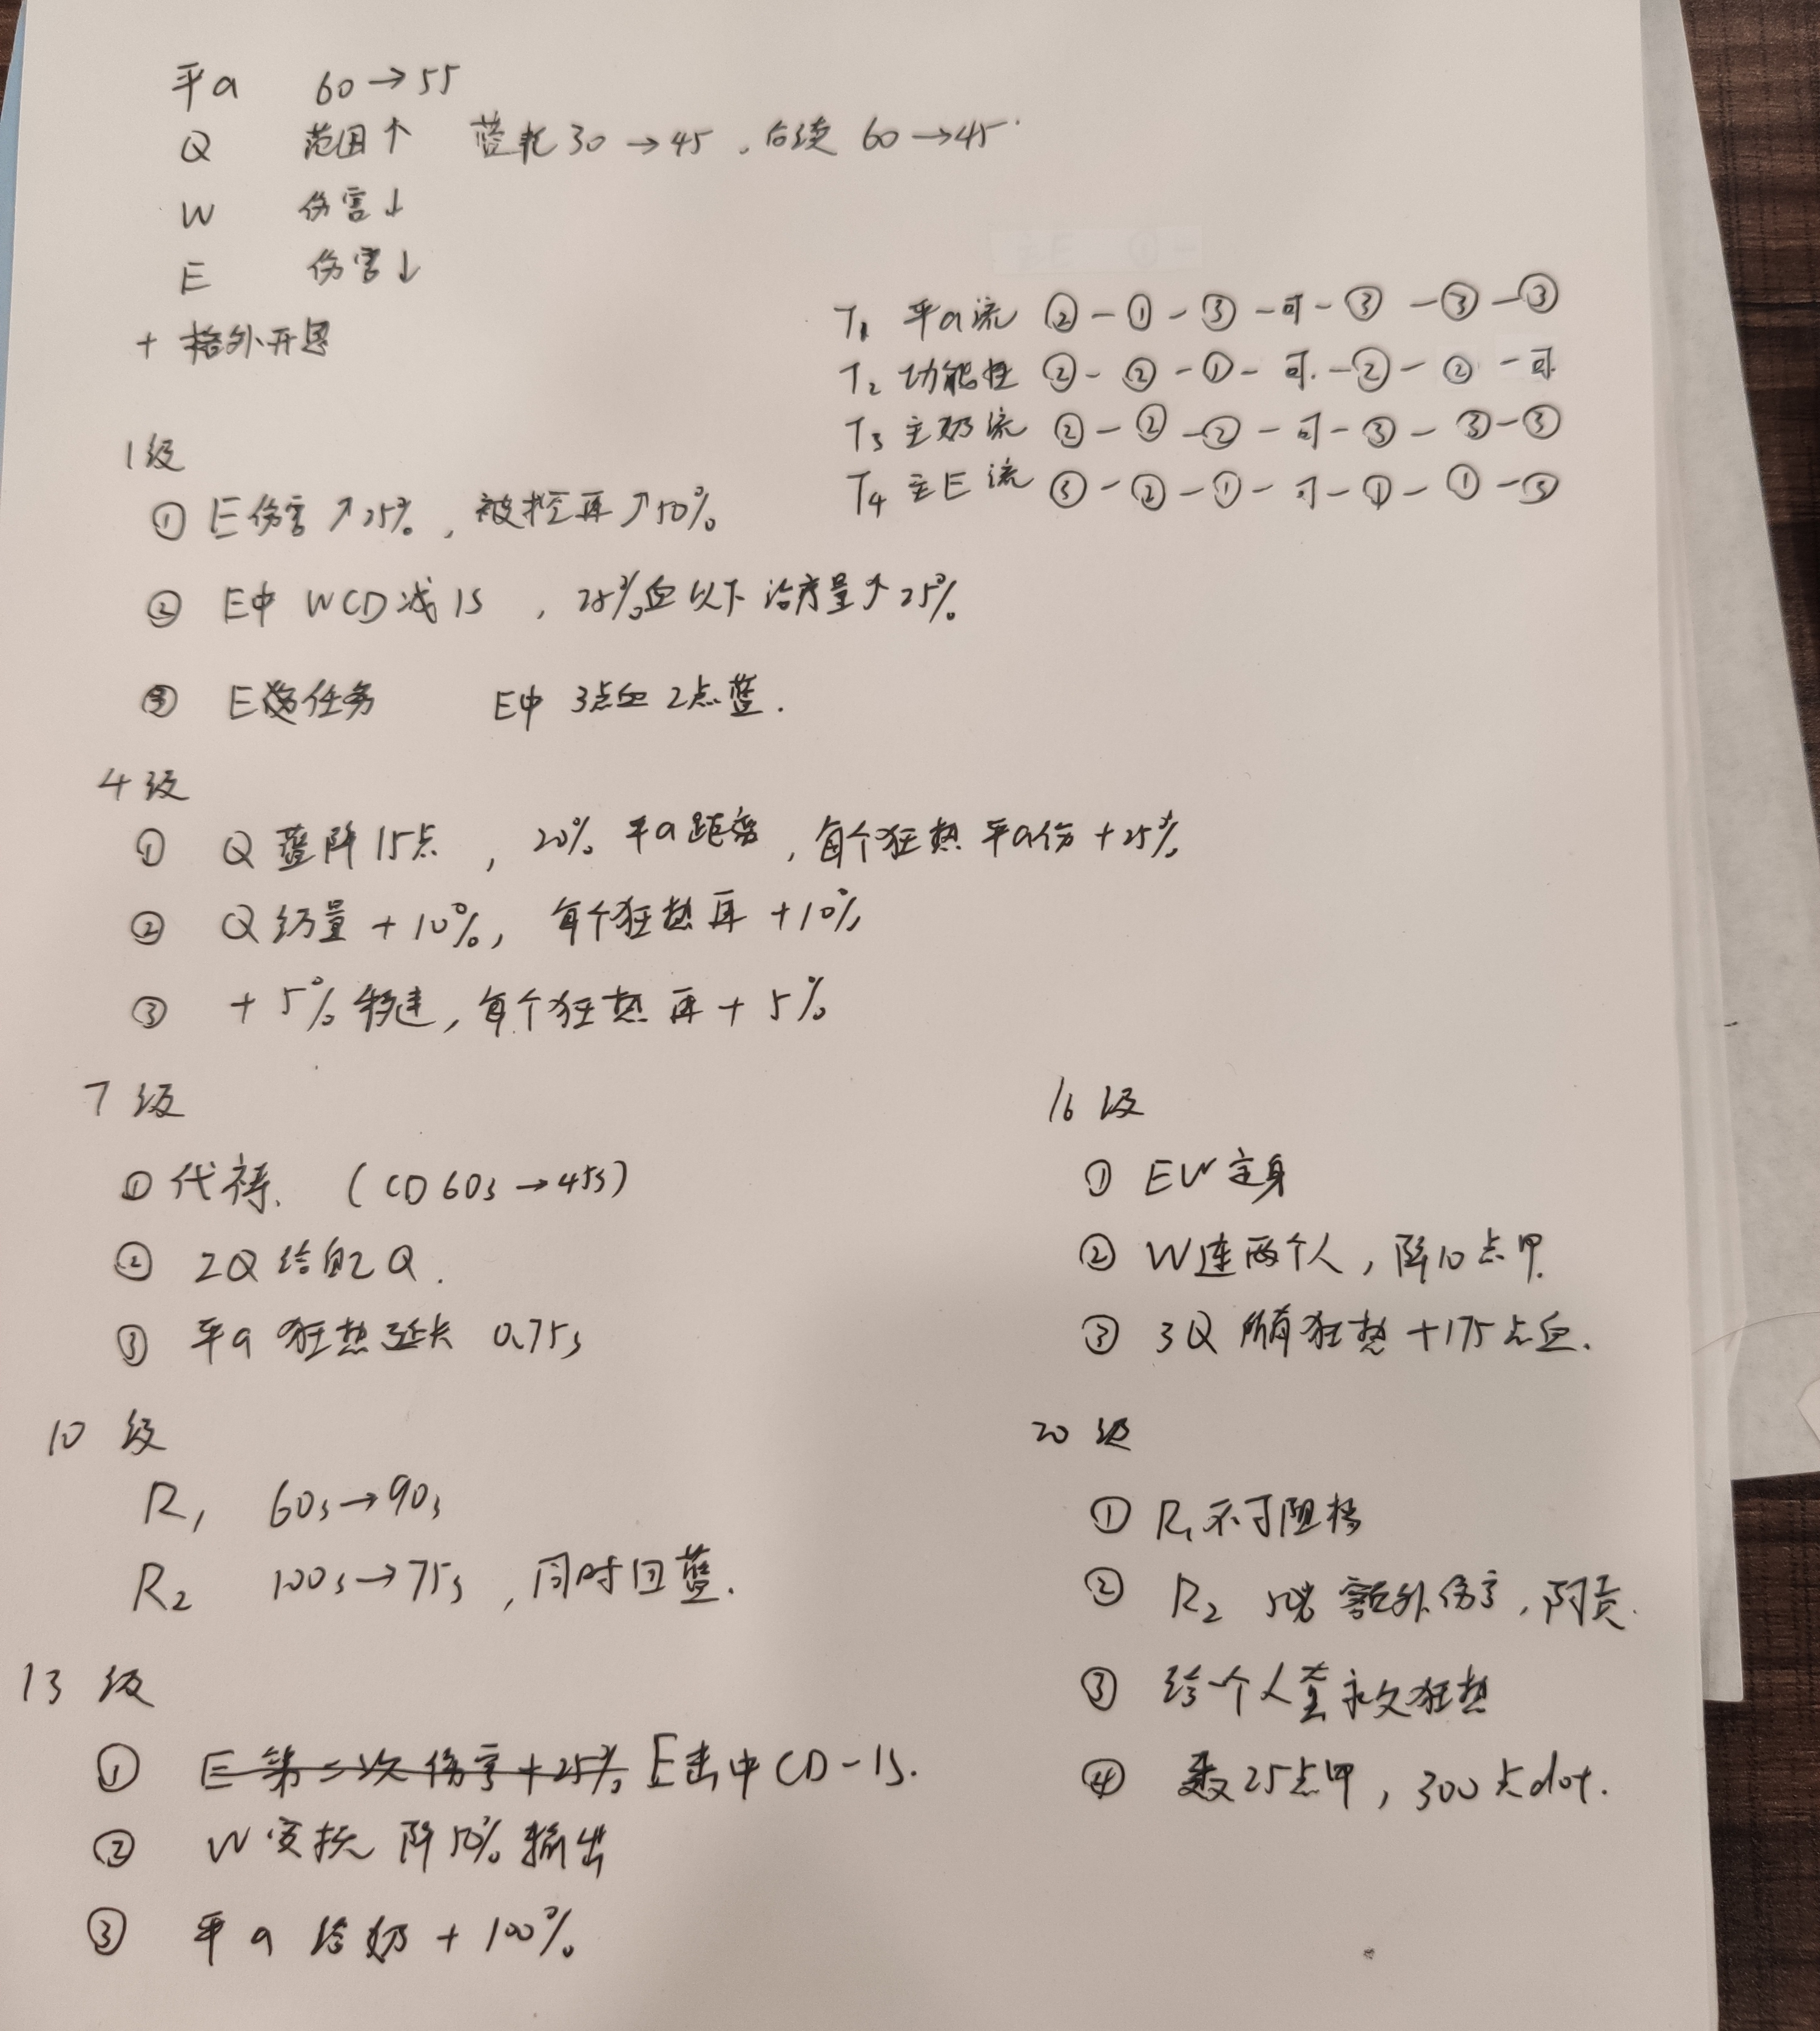 平a 60→55
Q 范围↑ 蓝耗30→45，后续60→45
W 伤害↓
E 伤害↓
+ 格外开恩
T1 平a流 ②-①-③-可-③-③-③
T2 功能性 ②-②-①-可-②-②-可
T3 主奶流 ②-②-②-可-③-③-③
T4 主E流 ③-②-①-可-①-①-③
1级
① E伤害↗25%，被控再↗50%
② E中 WCD减1S，25%血以下治疗量↗25%
③ E 任务 E中 3点血2点蓝.
4级
① Q蓝降15点，20%平a距离，每个狂热平a伤+25%
② Q奶量+10%，每个狂热再+10%
③ +5%移速，每个狂热再+5%
7级
① 代祷. (CD 60s→45s)
② 2Q给自己Q.
③ 平a狂热延长 0.75s
10级
R1 60s→90s
R2 100s→75s，同时回蓝.
13级
① E第二次伤害+25% E击中CD-1S.
② W变抚 降50%输出
③ 平a给奶+100%
16级
① EW定身
② W连两个人，降10点甲.
③ 3Q 所有狂热+175点血.
20级
① R1不可阻挡
② R2 50%额外伤害，阿贡.
③ 给一个人套永久狂热
④ 25点甲，300点dot.